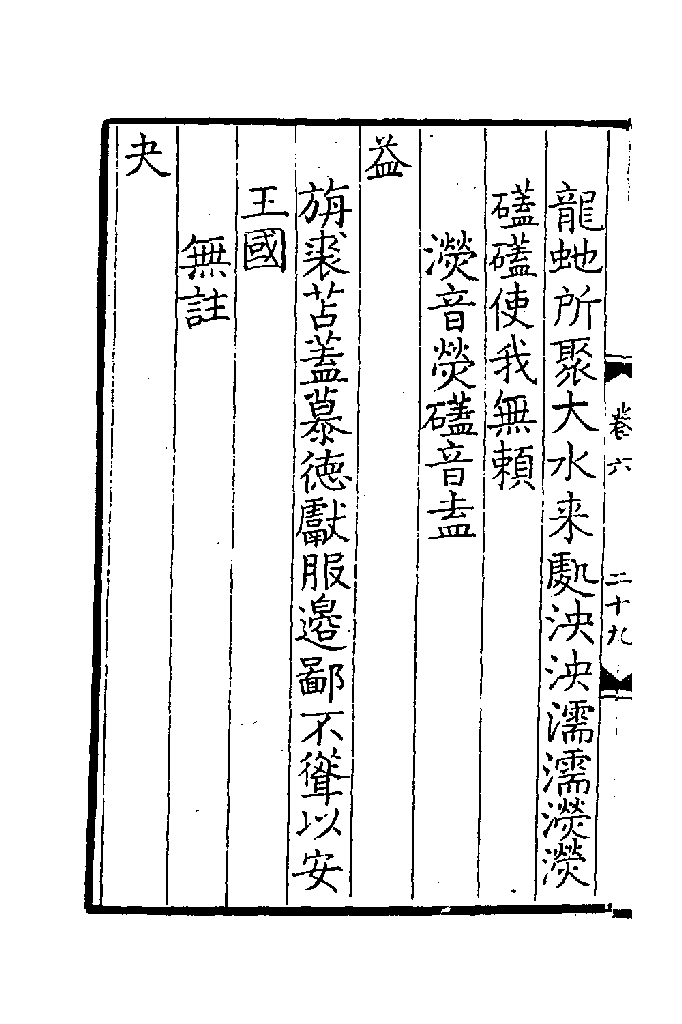 龍虵所聚大水来處泱泱濡濡濙濙
礚礚使我無頼
濙音熒礚音盍
益
旃裘苫蓋慕徳獻服邉鄙不聳以安
王國
無註
夬
卷六
二十九